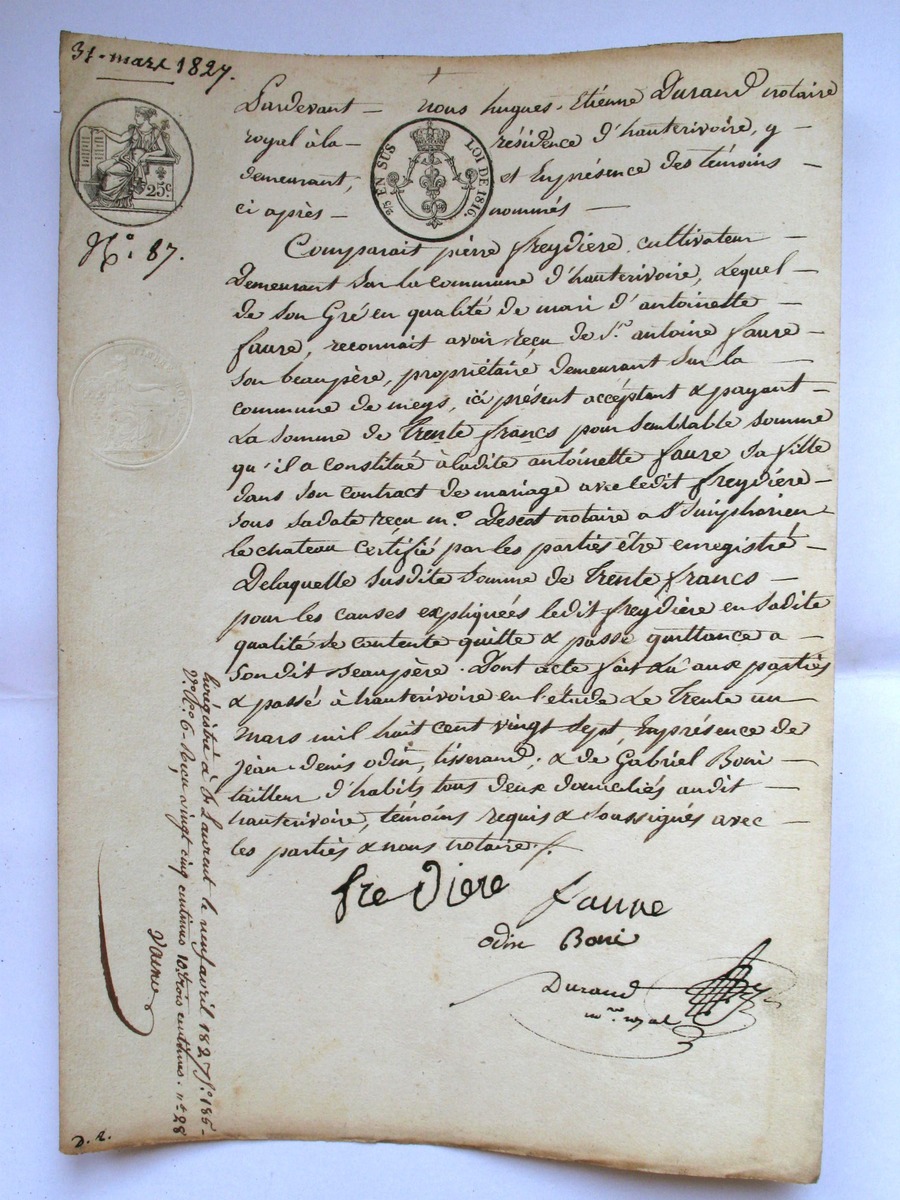 31. mars 1827.
25 c.
2/5 EN SUS LOI DE 1816.
N.o 87.
Pardevant — nous hugues-Etienne Durand notaire
royal à la — résidence d'hauterivoire, y —
demeurant, et Enprésence des témoins —
ci après — nommés —
Comparait pierre freydiere, cultivateur —
demeurant sur la commune d'hauterivoire, Lequel —
de son Gré en qualité de mari d'antoinette —
faure, reconnait avoir reçu de S.r antoine faure —
son beaupère, propriétaire demeurant sur la —
commune de meys, ici présent accéptant & payant —
La somme de trente francs pour semblable somme
qu'il a constitué à ladite antoinette faure sa fille
dans son contract de mariage avec ledit freydière —
sous sa date reçu m.e notaire a S.t Simphorien
le chateau certifié par les parties être enregistré —
De laquelle susdite somme de trente francs —
pour les causes expliquées ledit freydière en sadite
qualité se contente quitte & passe quittance a —
sondit Beaupère. Dont acte fait Lu aux parties
& passé à hauterivoire en l'étude Le trente un
Mars mil huit cent vingt sept, Enprésence de
jean-denis odin, tisserand, & de Gabriel Boni —
tailleur d'habits tous deux domiciliés audit —
hauterivoire, témoins requis & soussignés avec —
les parties & nous notaire./.
freDiere faure
odin Boni
Durand
n.re royal
Enrégistré à S.t Laurent le neuf avril 1827 f.o 185
v.o C. 6. Reçu vingt cinq centimes 10.e trois centimes.
D. R.